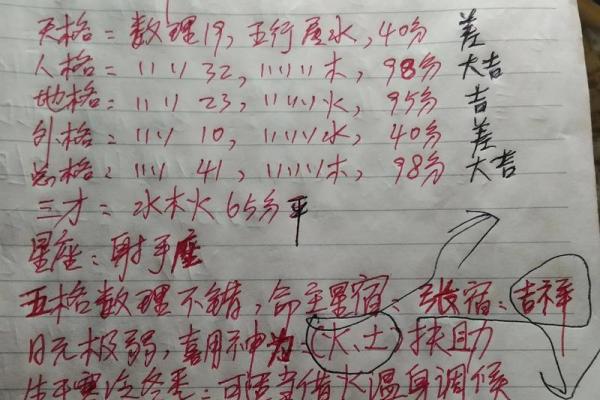 天格：数理19，五行属水，40分 差
人格：〃〃32，〃〃木，98分 大吉
地格：〃〃23，〃〃火，95分 吉
外格：〃〃10，〃〃水，40分 差
总格：〃〃41，〃〃木，98分 大吉
三才：水木火65分 平
星座：射手座
五格数理不错，命主星宿：张宿：吉祥
日元极弱，喜用神为：（火、土）扶助
生于寒冷冬季：可适当借火温身调候